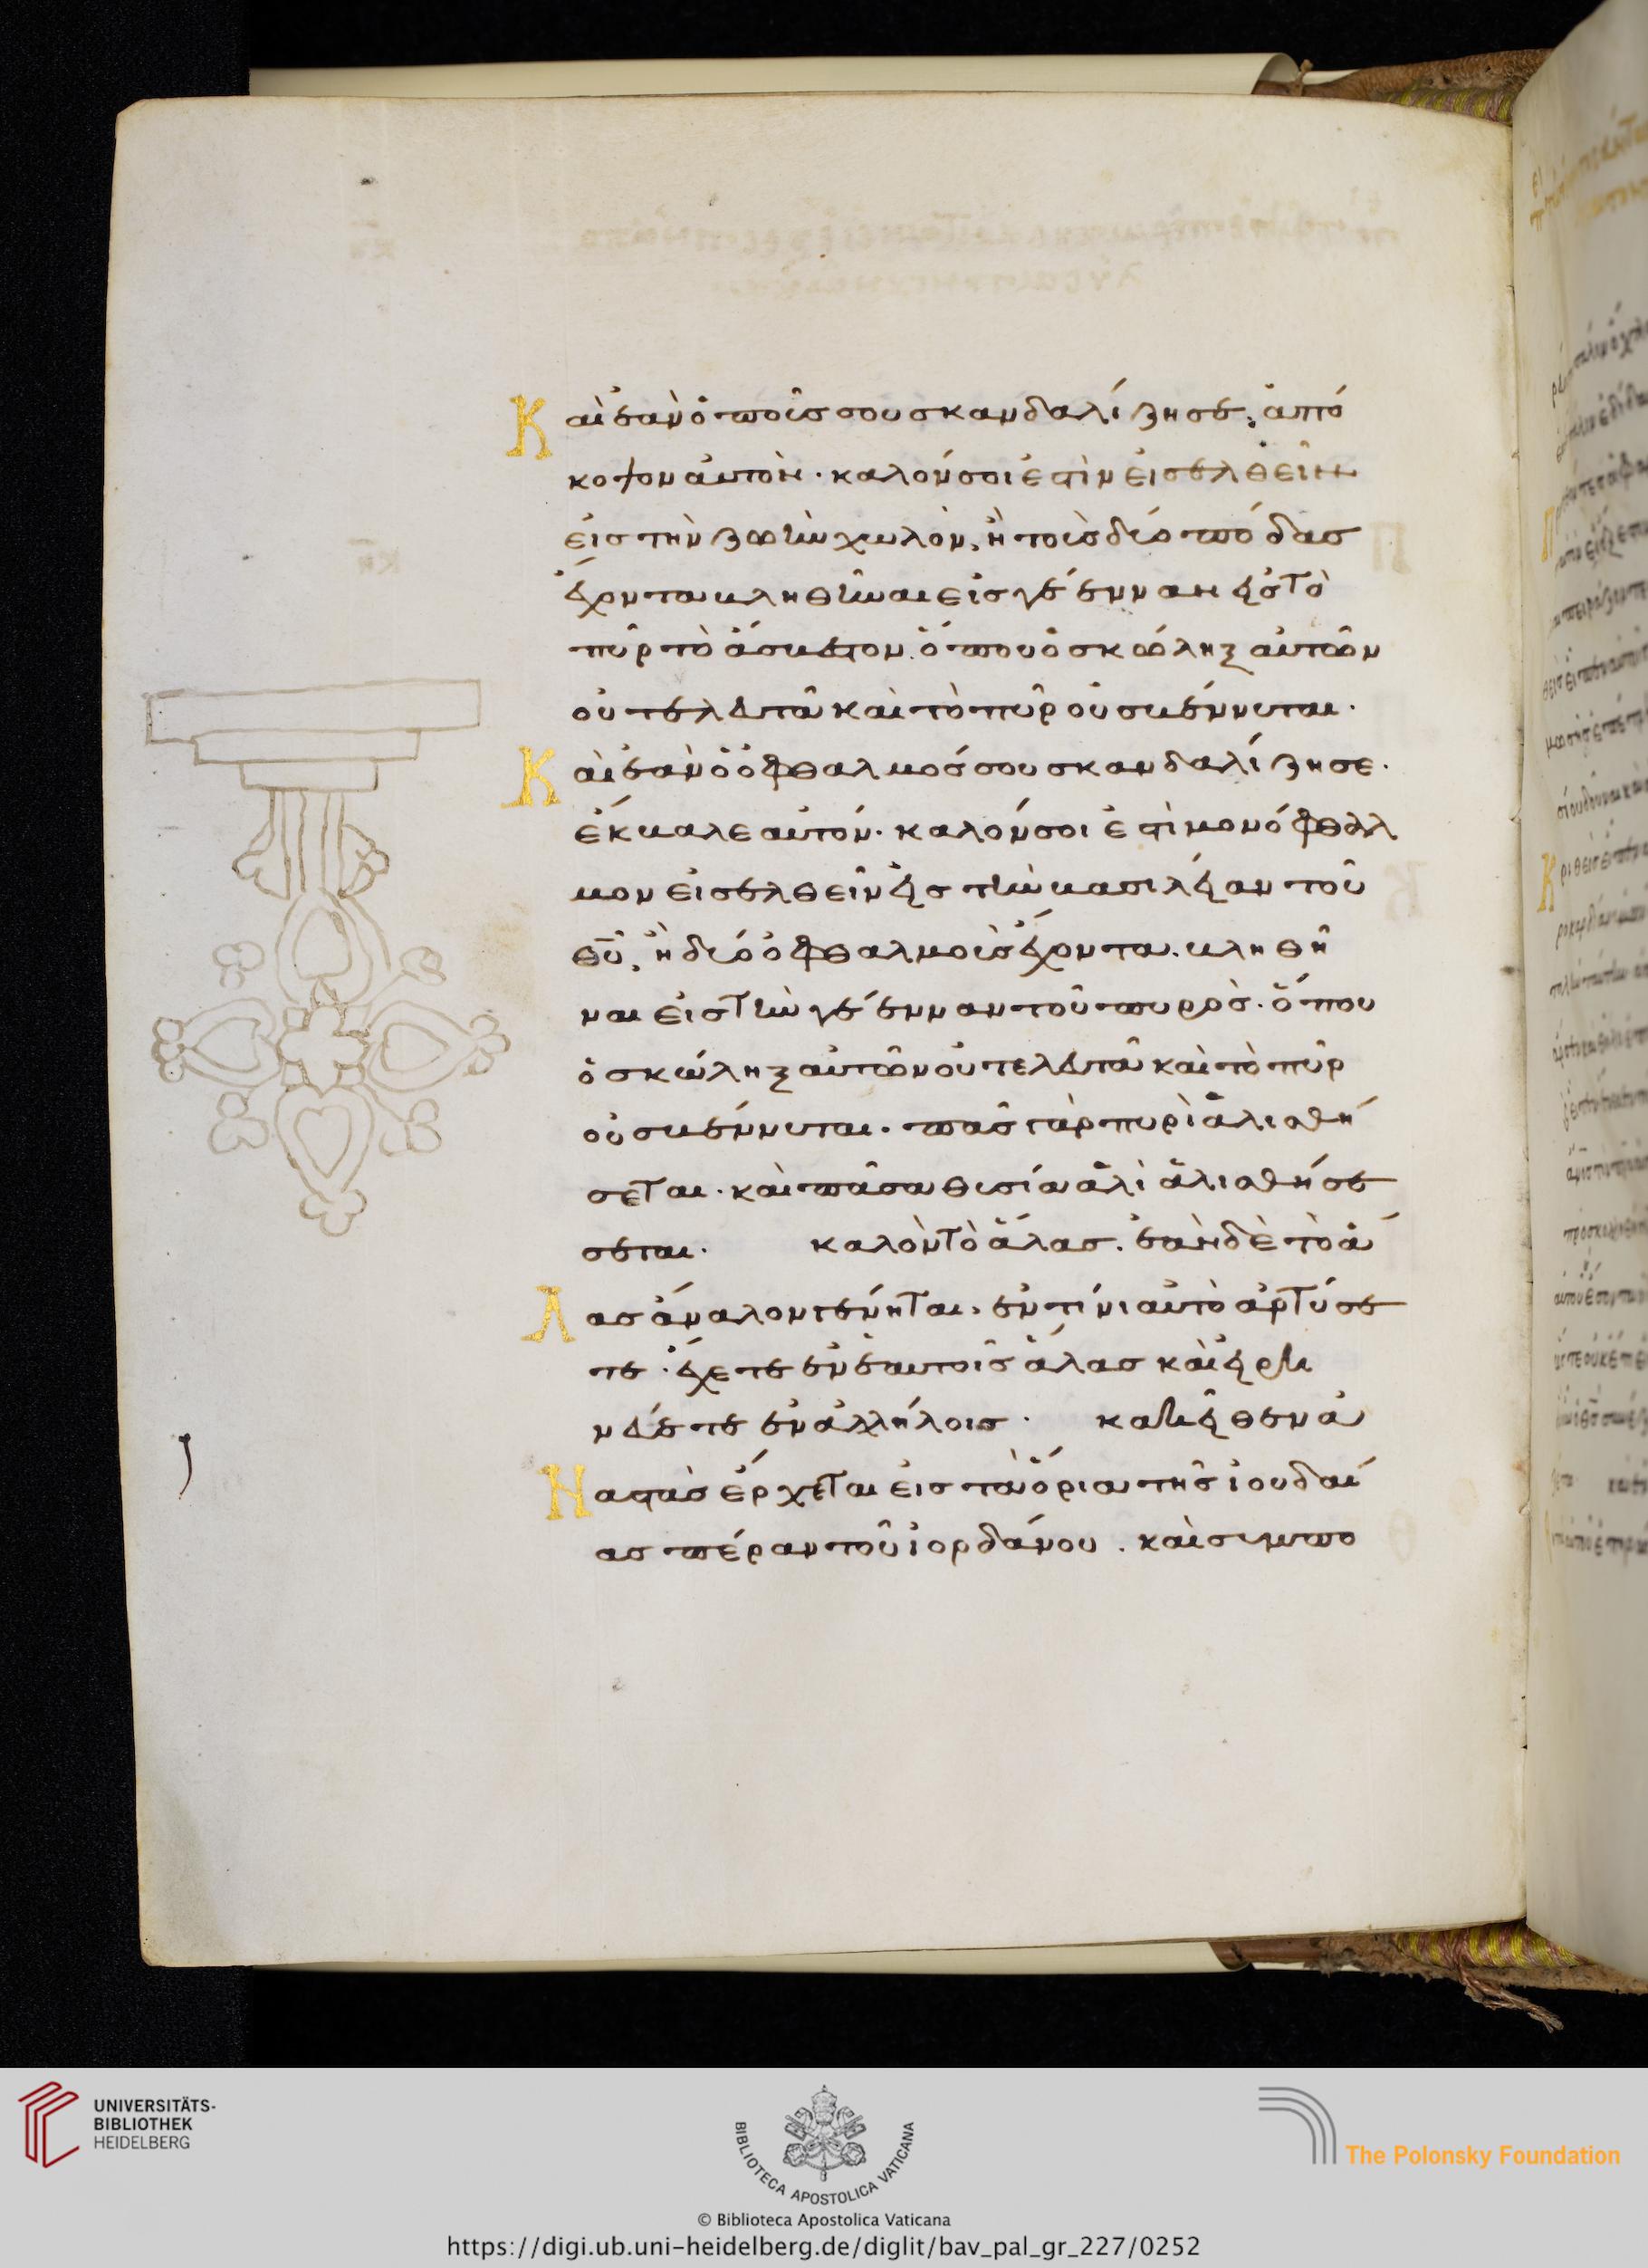 Καὶ ἐὰν ὁ ποῦς σου σκανδαλίζησε, ἀπό
κοψον ἀυτὸν · καλόν σοι ἐστὶν εἰσελθεῖν
εἰς τὴν ζωὴν χωλὸν, ἢ τοὺς δύο πόδας
ἔχοντα βληθῆναι εἰς γέενναν εἰς τὸ
πῦρ τὸ ἄσβεστον. ὅπου ὁ σκώληξ αὐτῶν
οὐ τελευτᾶ καὶ τὸ πῦρ οὐ σβέννυται ·
Καὶ ἐὰν ὁ ὀφθαλμός σου σκανδαλίζησε ·
ἔκβαλε αὐτόν · καλόν σοι ἐστὶ μονόφθαλ
μον εἰσελθεῖν εἰς τὴν βασιλείαν τοῦ
θῦ, ἢ δύο ὀφθαλμοὺς ἔχοντα. βληθῆ
ναι εἰς τὴν γέενναν τοῦ πυρὸς · ὅπου
ὁ σκώληξ αὐτῶν οὐ τελευτᾶ καὶ τὸ πῦρ
οὐ σβέννυται · πᾶς γὰρ πυρὶ ἁλισθή
σεται · καὶ πᾶσα θυσία ἁλὶ ἁλισθήσε
σεται · καλὸν τὸ ἅλας. ἐὰν δὲ τὸ ἅ
Λας ἄναλον γένηται, ἐν τίνι αὐτὸ ἀρτύσε
τε · ἔχετε ἐν ἑαυτοῖς ἅλας καὶ εἰρη
νεύετε ἐν ἀλλήλοις · κακεῖθεν ἀ
Ναστὰς ἔρχεται εἰς τὰ ὅρια τῆς ἰουδαί
ας πέραν τοῦ ἰορδάνου . καὶ συμπο
UNIVERSITÄTS-
BIBLIOTHEK
HEIDELBERG
BIBLIOTECA APOSTOLICA VATICANA
The Polonsky Foundation
© Biblioteca Apostolica Vaticana
https://digi.ub.uni-heidelberg.de/diglit/bav_pal_gr_227/0252